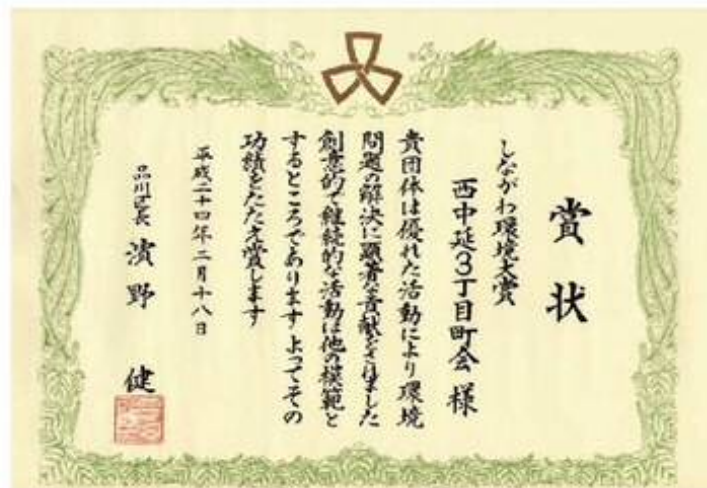 賞状
しながわ環境大賞
西中延3丁目町会様
貴団体は優れた活動により環境
問題の解決に顕著な貢献をされました
創意的で継続的な活動は他の模範と
するところでありますよってその
功績をたたえ賞します
平成二十四年二月十八日
品川区長 濱野 健